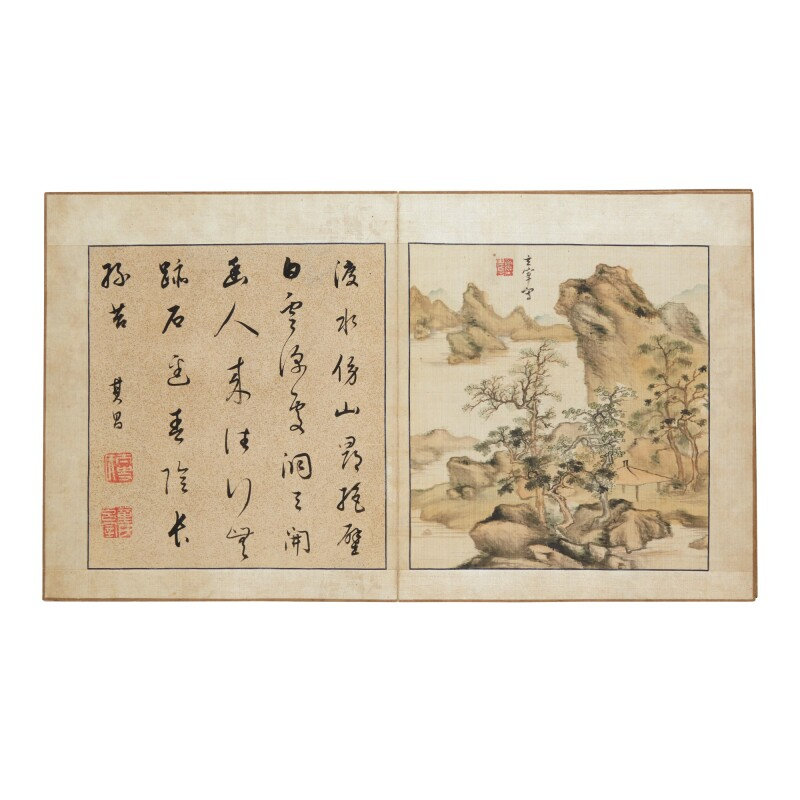 渡水傍山尋絕壁
白雲深處洞天開
幽人來往行無
跡石徑春陰長
綠苔
其昌
玄宰寫